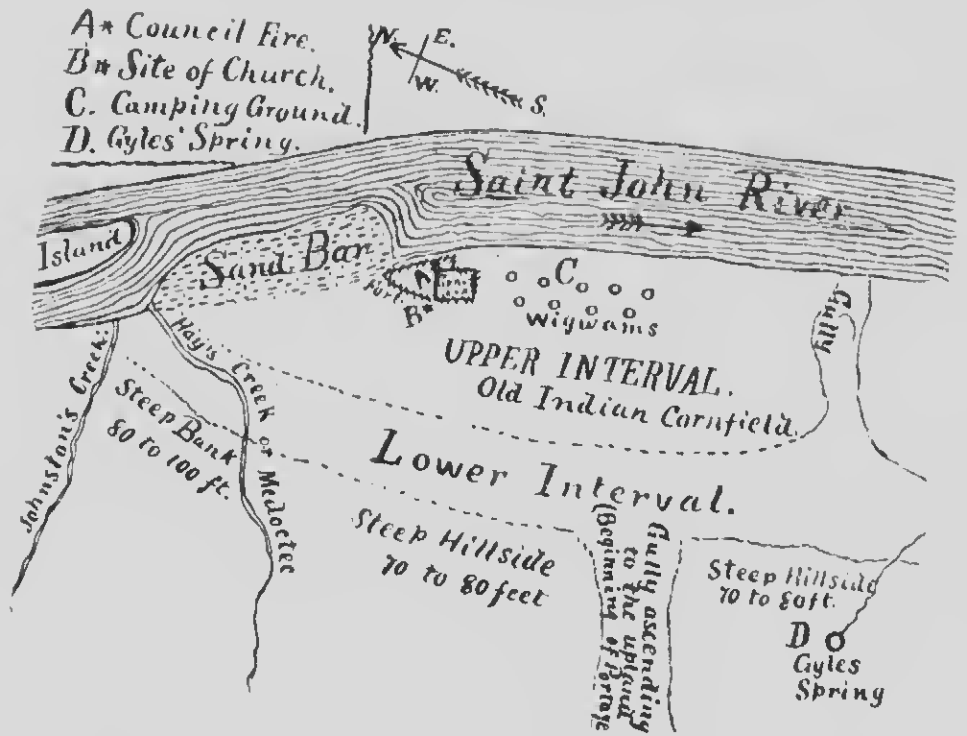 A* Council Fire.
B* Site of Church.
C. Camping Ground.
D. Gyles' Spring.
N.
E.
W.
S.
Saint John River
Island
Sand Bar
Fort
A*
B*
C
Wigwams
Gully
UPPER INTERVAL.
Old Indian Cornfield.
Johnston's Creek.
Hay's Creek or Medoctec
Steep Bank
80 to 100 ft.
Lower Interval.
Steep Hillside
70 to 80 feet
Gully ascending
to the upland
(Beginning of Portage
Steep Hillside
70 to 80 ft.
D
Gyles
Spring